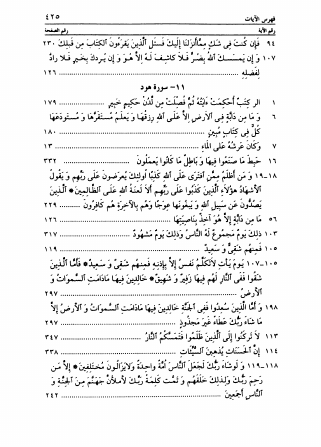 فهرس الآيات ٤٢٥
رقم الآية رقم الصفحة
٩٤ فَإِن كُنتَ فِي شَكٍّ مِمَّا أَنْزَلْنَا إِلَيْكَ فَسْئَلِ الَّذِينَ يَقْرَءُونَ الْكِتَابَ مِن قَبْلِكَ ٢٣٠
١٠٧ وَ إِن يَمْسَسْكَ اللَّهُ بِضُرٍّ فَلَا كَاشِفَ لَهُ إِلَّا هُوَ وَ إِن يُرِدْكَ بِخَيْرٍ فَلَا رَادَّ
لِفَضْلِهِ ١٢٦
١١- سورة هود
١ الر كِتَابٌ أُحْكِمَتْ ءَايَاتُهُ ثُمَّ فُصِّلَتْ مِن لَّدُنْ حَكِيمٍ خَبِيرٍ ١٧٩
٦ وَ مَا مِن دَابَّةٍ فِي الْأَرْضِ إِلَّا عَلَى اللَّهِ رِزْقُهَا وَ يَعْلَمُ مُسْتَقَرَّهَا وَ مُسْتَوْدَعَهَا
كُلٌّ فِي كِتَابٍ مُبِينٍ ١٨٠
٧ وَكَانَ عَرْشُهُ عَلَى الْمَاءِ ١٣
١٦ حَبِطَ مَا صَنَعُوا فِيهَا وَ بَاطِلٌ مَا كَانُوا يَعْمَلُونَ ٣٣٢
١٨-١٩ وَ مَنْ أَظْلَمُ مِمَّنِ افْتَرَى عَلَى اللَّهِ كَذِبًا أُولَئِكَ يُعْرَضُونَ عَلَى رَبِّهِمْ وَ يَقُولُ
الْأَشْهَادُ هَؤُلَاءِ الَّذِينَ كَذَبُوا عَلَى رَبِّهِمْ أَلَا لَعْنَةُ اللَّهِ عَلَى الظَّالِمِينَ * الَّذِينَ
يَصُدُّونَ عَن سَبِيلِ اللَّهِ وَ يَبْغُونَهَا عِوَجًا وَهُم بِالْآخِرَةِ هُمْ كَافِرُونَ ٢٢٩
٥٦ مَا مِن دَابَّةٍ إِلَّا هُوَ آخِذٌ بِنَاصِيَتِهَا ١٢٦
١٠٣ ذَلِكَ يَوْمٌ مَجْمُوعٌ لَهُ النَّاسُ وَذَلِكَ يَوْمٌ مَشْهُودٌ ٣١٧
١٠٥ فَمِنْهُمْ شَقِيٌّ وَ سَعِيدٌ ١١٩
١٠٥-١٠٧ يَوْمَ يَأْتِ لَا تَكَلَّمُ نَفْسٌ إِلَّا بِإِذْنِهِ فَمِنْهُمْ شَقِيٌّ وَ سَعِيدٌ * فَأَمَّا الَّذِينَ
شَقُوا فَفِي النَّارِ لَهُمْ فِيهَا زَفِيرٌ وَ شَهِيقٌ * خَالِدِينَ فِيهَا مَا دَامَتِ السَّمَوَاتُ وَ
الْأَرْضُ ٢٩٧
١٠٨ وَ أَمَّا الَّذِينَ سُعِدُوا فَفِي الْجَنَّةِ خَالِدِينَ فِيهَا مَادَامَتِ السَّمَوَاتُ وَ الْأَرْضُ إِلَّا
مَا شَاءَ رَبُّكَ عَطَاءً غَيْرَ مَجْذُوذٍ ٢٩٧
١١٣ لَا تَرْكَنُوا إِلَى الَّذِينَ ظَلَمُوا فَتَمَسَّكُمُ النَّارُ ٣٤٧
١١٤ إِنَّ الْحَسَنَاتِ يُذْهِبْنَ السَّيِّئَاتِ ٣٣٨
١١٨-١١٩ وَ لَوْشَاءَ رَبُّكَ لَجَعَلَ النَّاسَ أُمَّةً وَاحِدَةً وَلَا يَزَالُونَ مُخْتَلِفِينَ * إِلَّا مَن
رَحِمَ رَبُّكَ وَلِذَلِكَ خَلَقَهُمْ وَ تَمَّتْ كَلِمَةُ رَبِّكَ لَأَمْلَأَنَّ جَهَنَّمَ مِنَ الْجِنَّةِ وَ
النَّاسِ أَجْمَعِينَ ٢٤٢